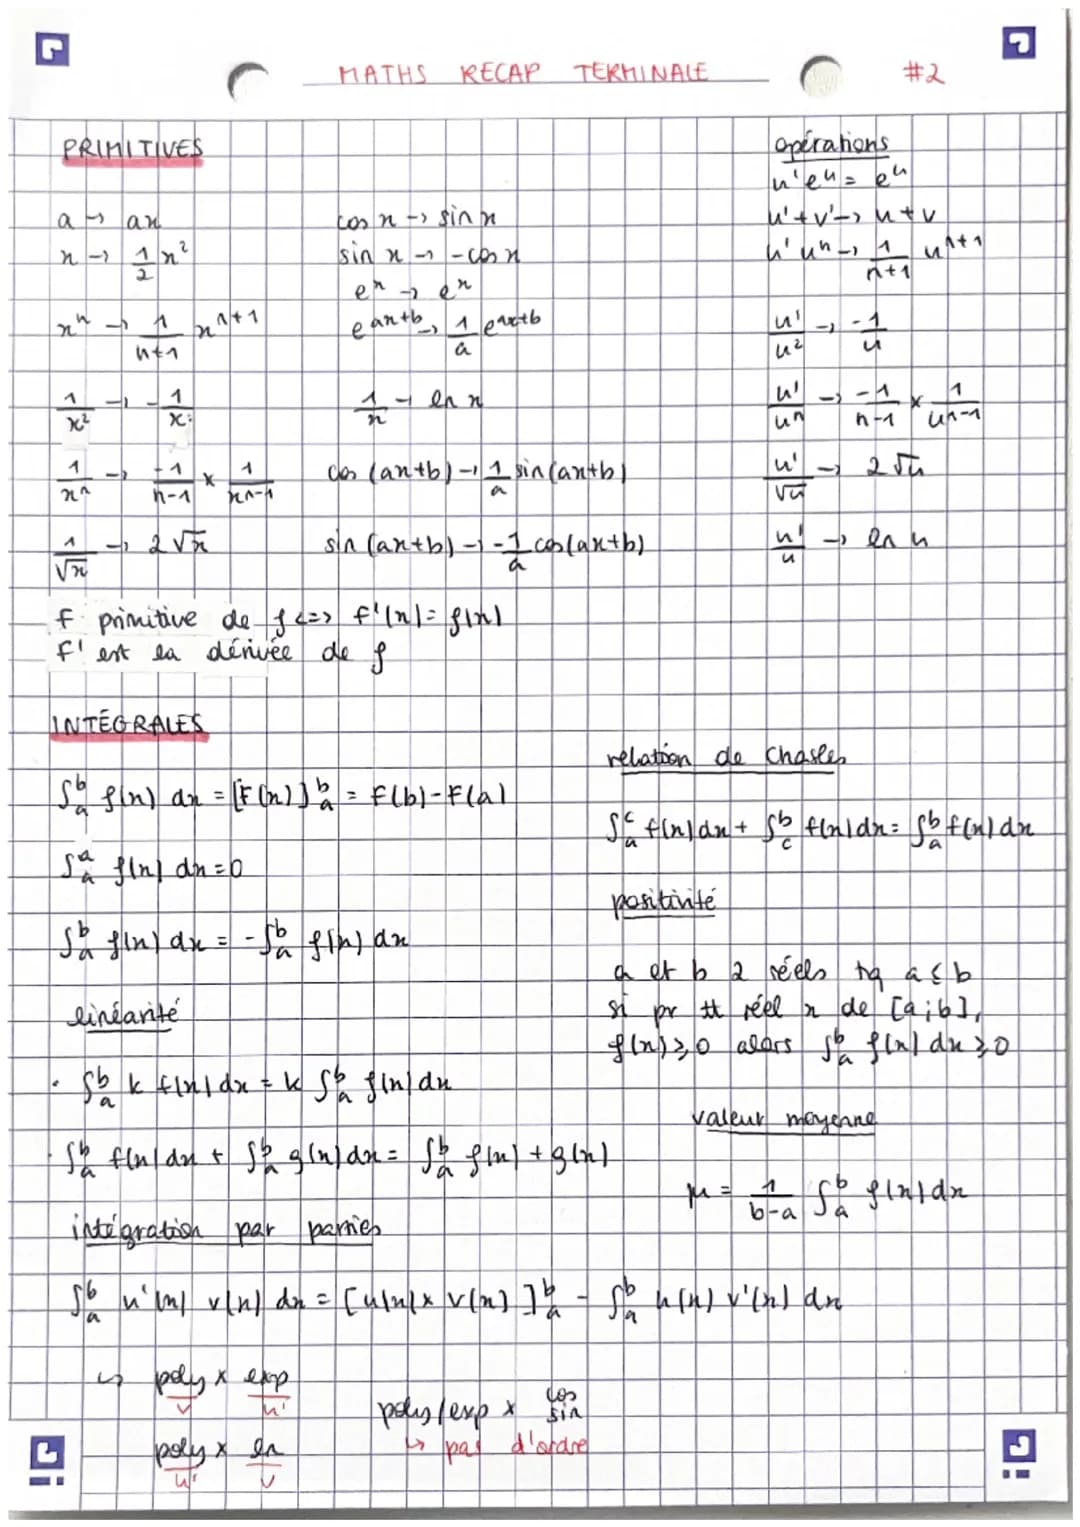 MATHS RECAP TERMINALE #2
PRIMITIVES
a → ax
x → 1/2 x²
xⁿ → 1/(n+1) xⁿ⁺¹
1/x² → -1/x
1/xⁿ → -1/(n-1) × 1/xⁿ⁻¹
1/√x → 2√x
cos x → sin x
sin x → -cos x
eˣ → eˣ
e^(ax+b) → 1/a e^(ax+b)
1/x → ln x
cos (ax+b) → 1/a sin(ax+b)
sin (ax+b) → -1/a cos(ax+b)
opérations
u'eᵘ = eᵘ
u'+v' → u+v
u'uⁿ → 1/(n+1) uⁿ⁺¹
u'/u² → -1/u
u'/uⁿ → -1/(n-1) × 1/uⁿ⁻¹
u'/√u → 2√u
u'/u → ln u
F primitive de f <=> F'(x) = f(x)
F' est la dérivée de f
INTÉGRALES
∫ₐᵇ f(x) dx = [F(x)]ₐᵇ = F(b)-F(a)
∫ₐᵃ f(x) dx = 0
∫ₐᵇ f(x) dx = -∫ₐᵇ f(x) dx
linéarité
• ∫ₐᵇ k f(x) dx = k ∫ₐᵇ f(x) dx
• ∫ₐᵇ f(x) dx + ∫ₐᵇ g(x) dx = ∫ₐᵇ f(x) + g(x)
relation de Chasles
∫ₐᶜ f(x) dx + ∫_c^b f(x) dx = ∫ₐᵇ f(x) dx
positivité
a et b 2 réels tq a ≤ b
si pr tt réel x de [a;b],
f(x) ≥ 0 alors ∫ₐᵇ f(x) dx ≥ 0
valeur moyenne
μ = 1/(b-a) ∫ₐᵇ f(x) dx
intégration par parties
∫ₐᵇ u'(x) v(x) dx = [u(x) × v(x)]ₐᵇ - ∫ₐᵇ u(x) v'(x) dx
↳ poly × exp
v u'
poly × ln
u' v
poly/exp × cos
sin
↳ pas d'ordre